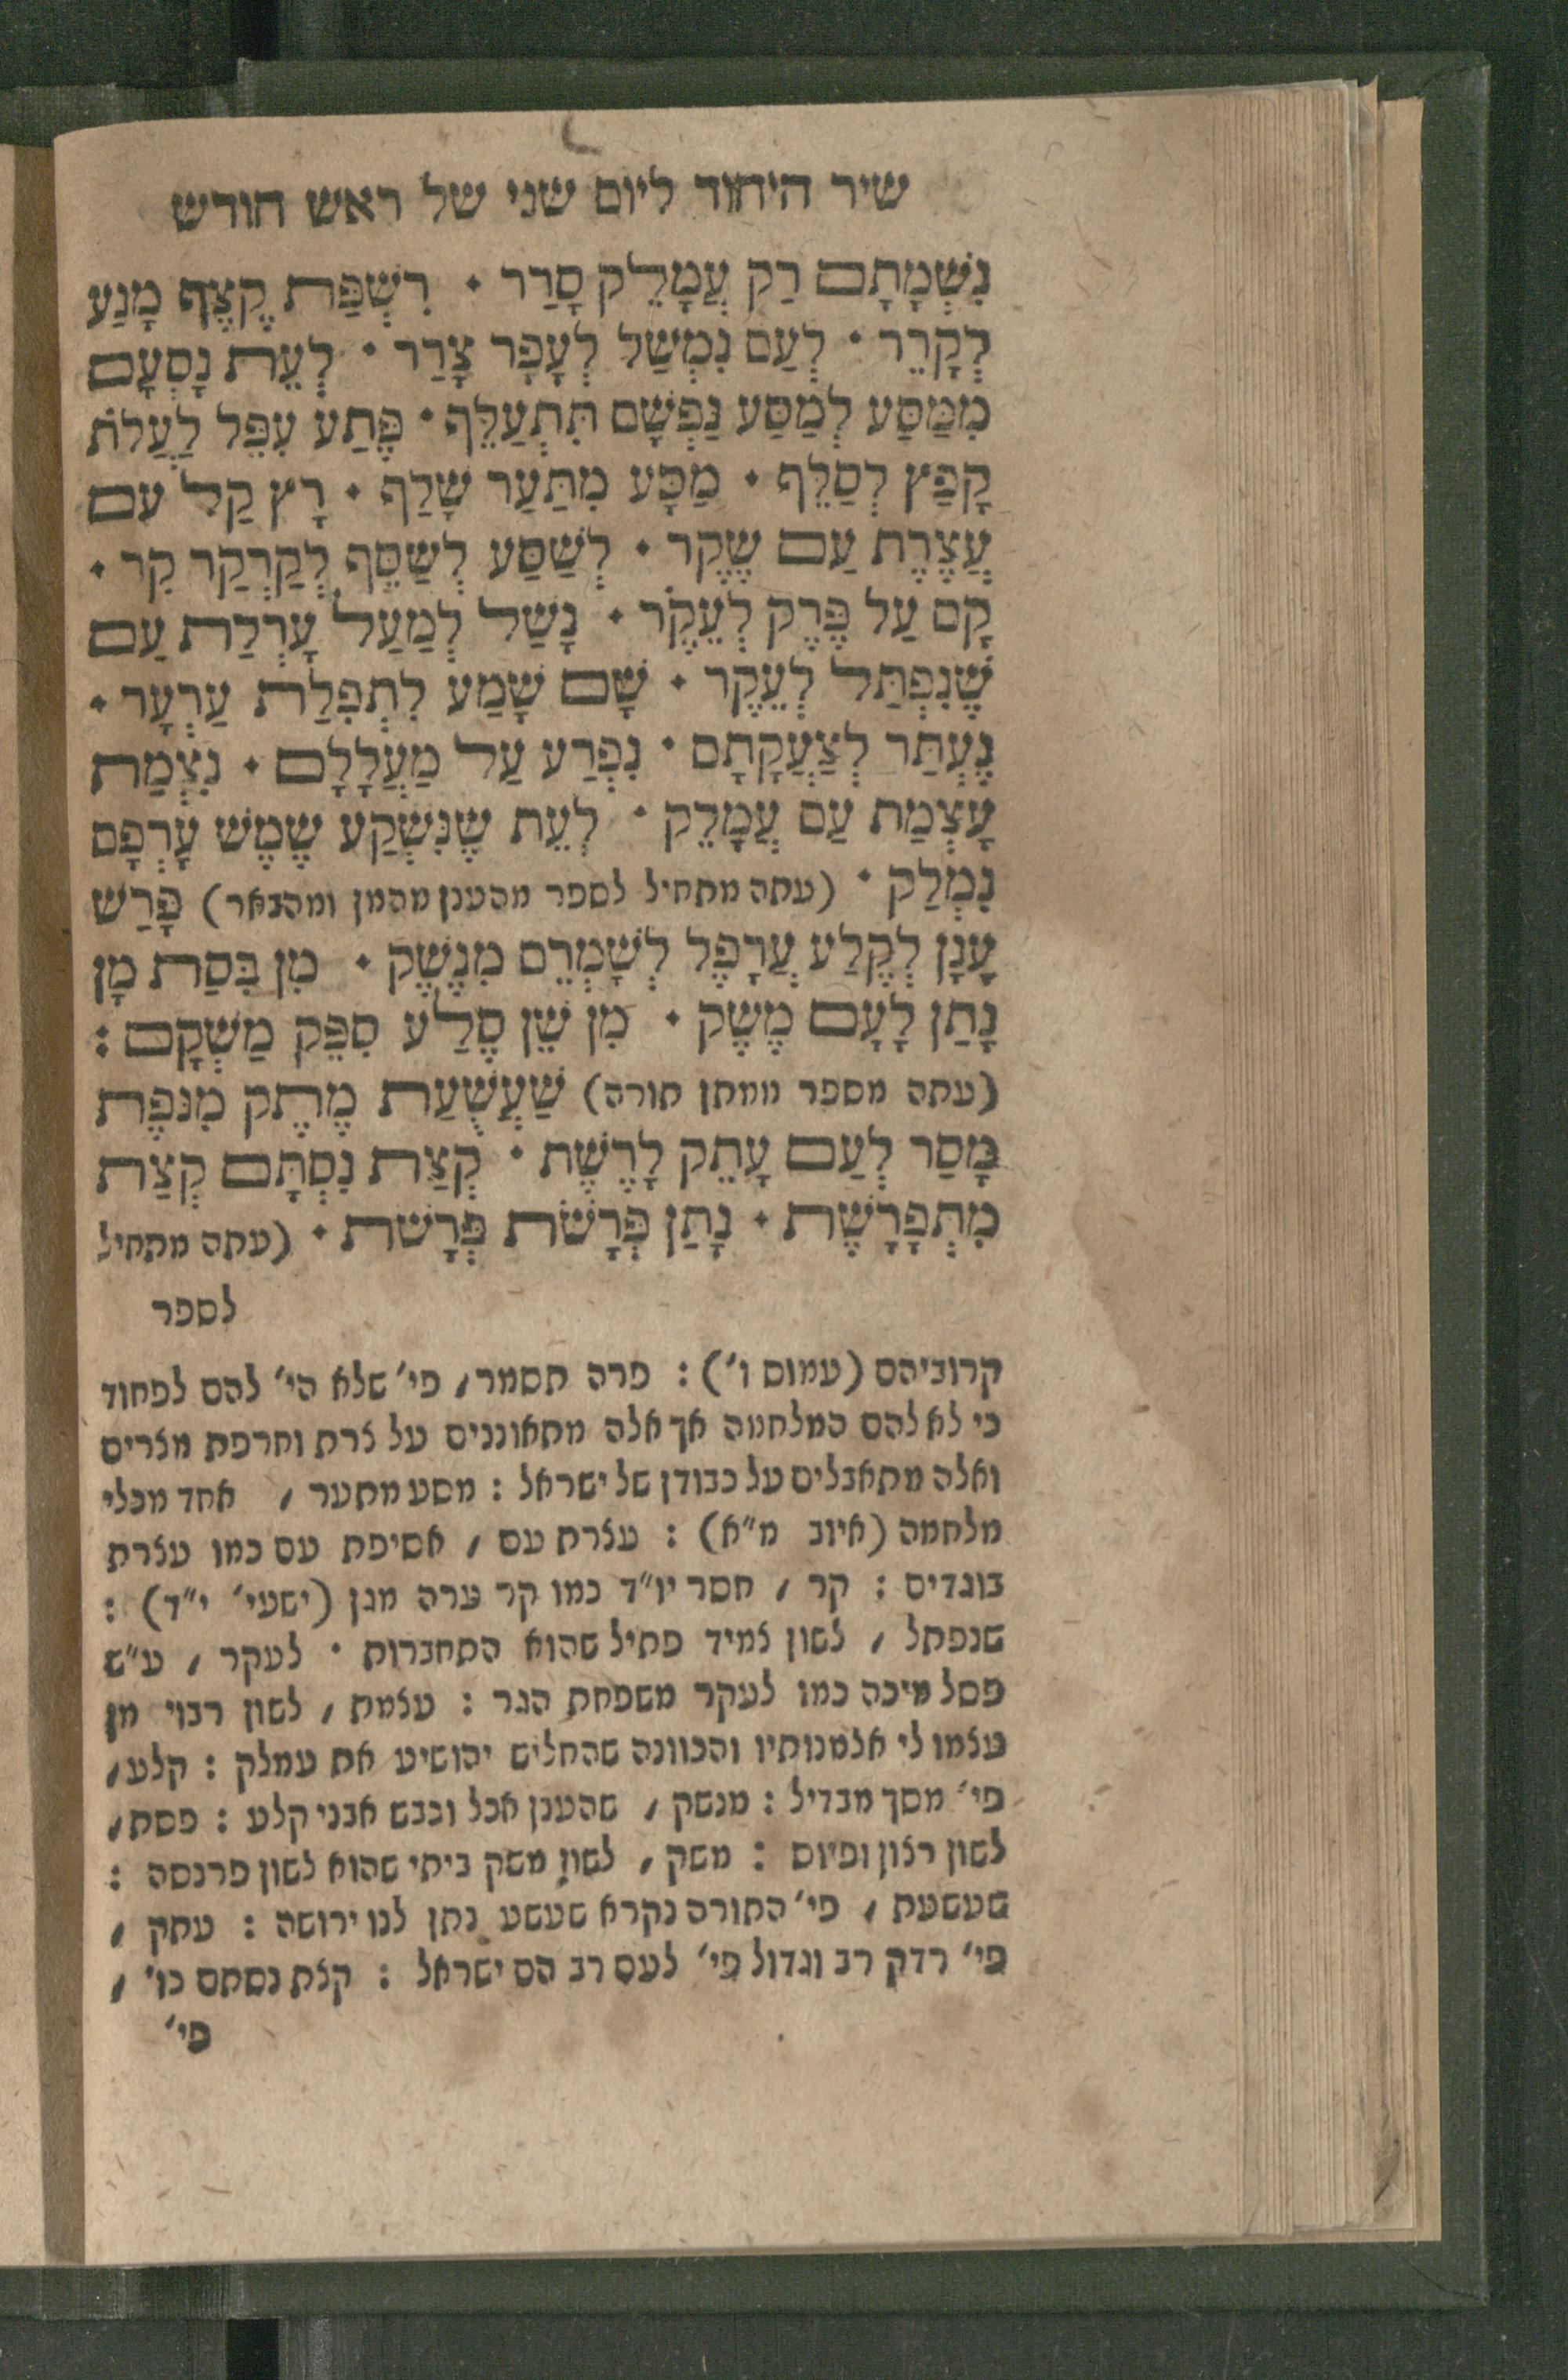 שיר היחוד ליום שני של ראש חודש
נִשְׁמָתָם רַק עֲמָלֵק סָרַר · רִשְׁפַּת קֶצֶף מָנַע
לְקָרֵר · לְעַם נִמְשַׁל לְעָפָר צָרַר · לְעֵת נָסְעָם
מִמַּסַּע לְמַסַּע נַפְשָׁם תִּתְעַלֵּף · פֶּתַע עִפֵּל לַעֲלֹת
קָפַץ לְסַלֵּף · מַסָּע מִתַּעַר שָׁלַף · רָץ קַל עִם
עֲצֶרֶת עַם שֶׁקֶר · לְשַׁסַּע לְשַׁסֵּף לְקַרְקַר קִר ·
קָם עַל פֶּרֶק לְעֵקֶר · נָשַׁל לְמַעַל עָרְלַת עַם
שֶׁנִּפְתַּל לְעֵקֶר · שָׁם שָׁמַע לִתְפִלַּת עַרְעָר ·
נֶעְתַּר לְצַעֲקָתָם · נִפְרַע עַל מַעֲלָלָם · נִצְמַת
עָצְמַת עַם עֲמָלֵק · לְעֵת שֶׁנִּשְׁקַע שֶׁמֶשׁ עָרְפָּם
נִמְלַק · (עתה מתחיל לספר מהענן מהמן ומהבאר) פָּרַשׁ
עָנָן לְקֶלַע עֲרָפֶל לְשָׁמְרֵם מִנֶּשֶׁק · מִן בִּסַּת מָן
נָתַן לָעָם מֶשֶׁק · מִן שֵׁן סֶלַע סִפֵּק מַשְׁקָם :
(עתה מספר ממתן תורה) שַׁעֲשֻׁעַת מֶתֶק מִנֹּפֶת
מָסַר לְעַם עָתֵק לָרֶשֶׁת · קְצַת נִסְתָּם קְצַת
מִתְפָּרָשֶׁת · נָתַן פְּרָשֹׁת פְּרָשֹׁת · (עתה מתחיל
לספר
קרוביהם (עמוס ו') : פרה תסמר, פי' שלא הי' להם לפחוד
כי לא להם המלחמה אך אלה מתאוננים על צרת וחרפת מצרים
ואלה מתאבלים על כבודן של ישראל : מסע מתער, אחד מכלי
מלחמה (איוב מ"א) : עצרת עם, אסיפת עם כמו עצרת
בוגדים : קר, חסר יו"ד כמו קר ערה מגן (ישעי' י"ד) :
שנפתל, לשון צמיד פתיל שהוא התחברות · לעקר, ע"ש
פסל מיכה כמו לעקר משפחת הגר : עצמת, לשון רבוי מן
עצמו לי אלמנותיו והכוונה שהחליש יהושיע את עמלק : קלע,
פי' מסך מבדיל : מנשק, שהענן אכל וכבש אבני קלע : פסת,
לשון רצון ופיוס : משק, לשון משק ביתי שהוא לשון פרנסה :
שעשעת, פי' התורה נקרא שעשע נתן לנו ירושה : עתק,
פי' רדק רב וגדול פי' לעם רב הם ישראל : קצת נסתם כו',
פי'